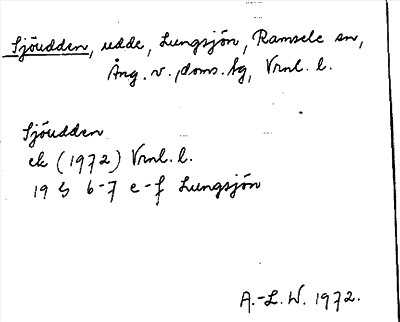 Sjöudden, udde, Lungsjön, Ramsele sn,
Ång. v., doms. tg, Vrnl. l.
Sjöudden
ek (1972) Vrnl. l.
19 G 6-7 e-f Lungsjön
A.-L. W. 1972.